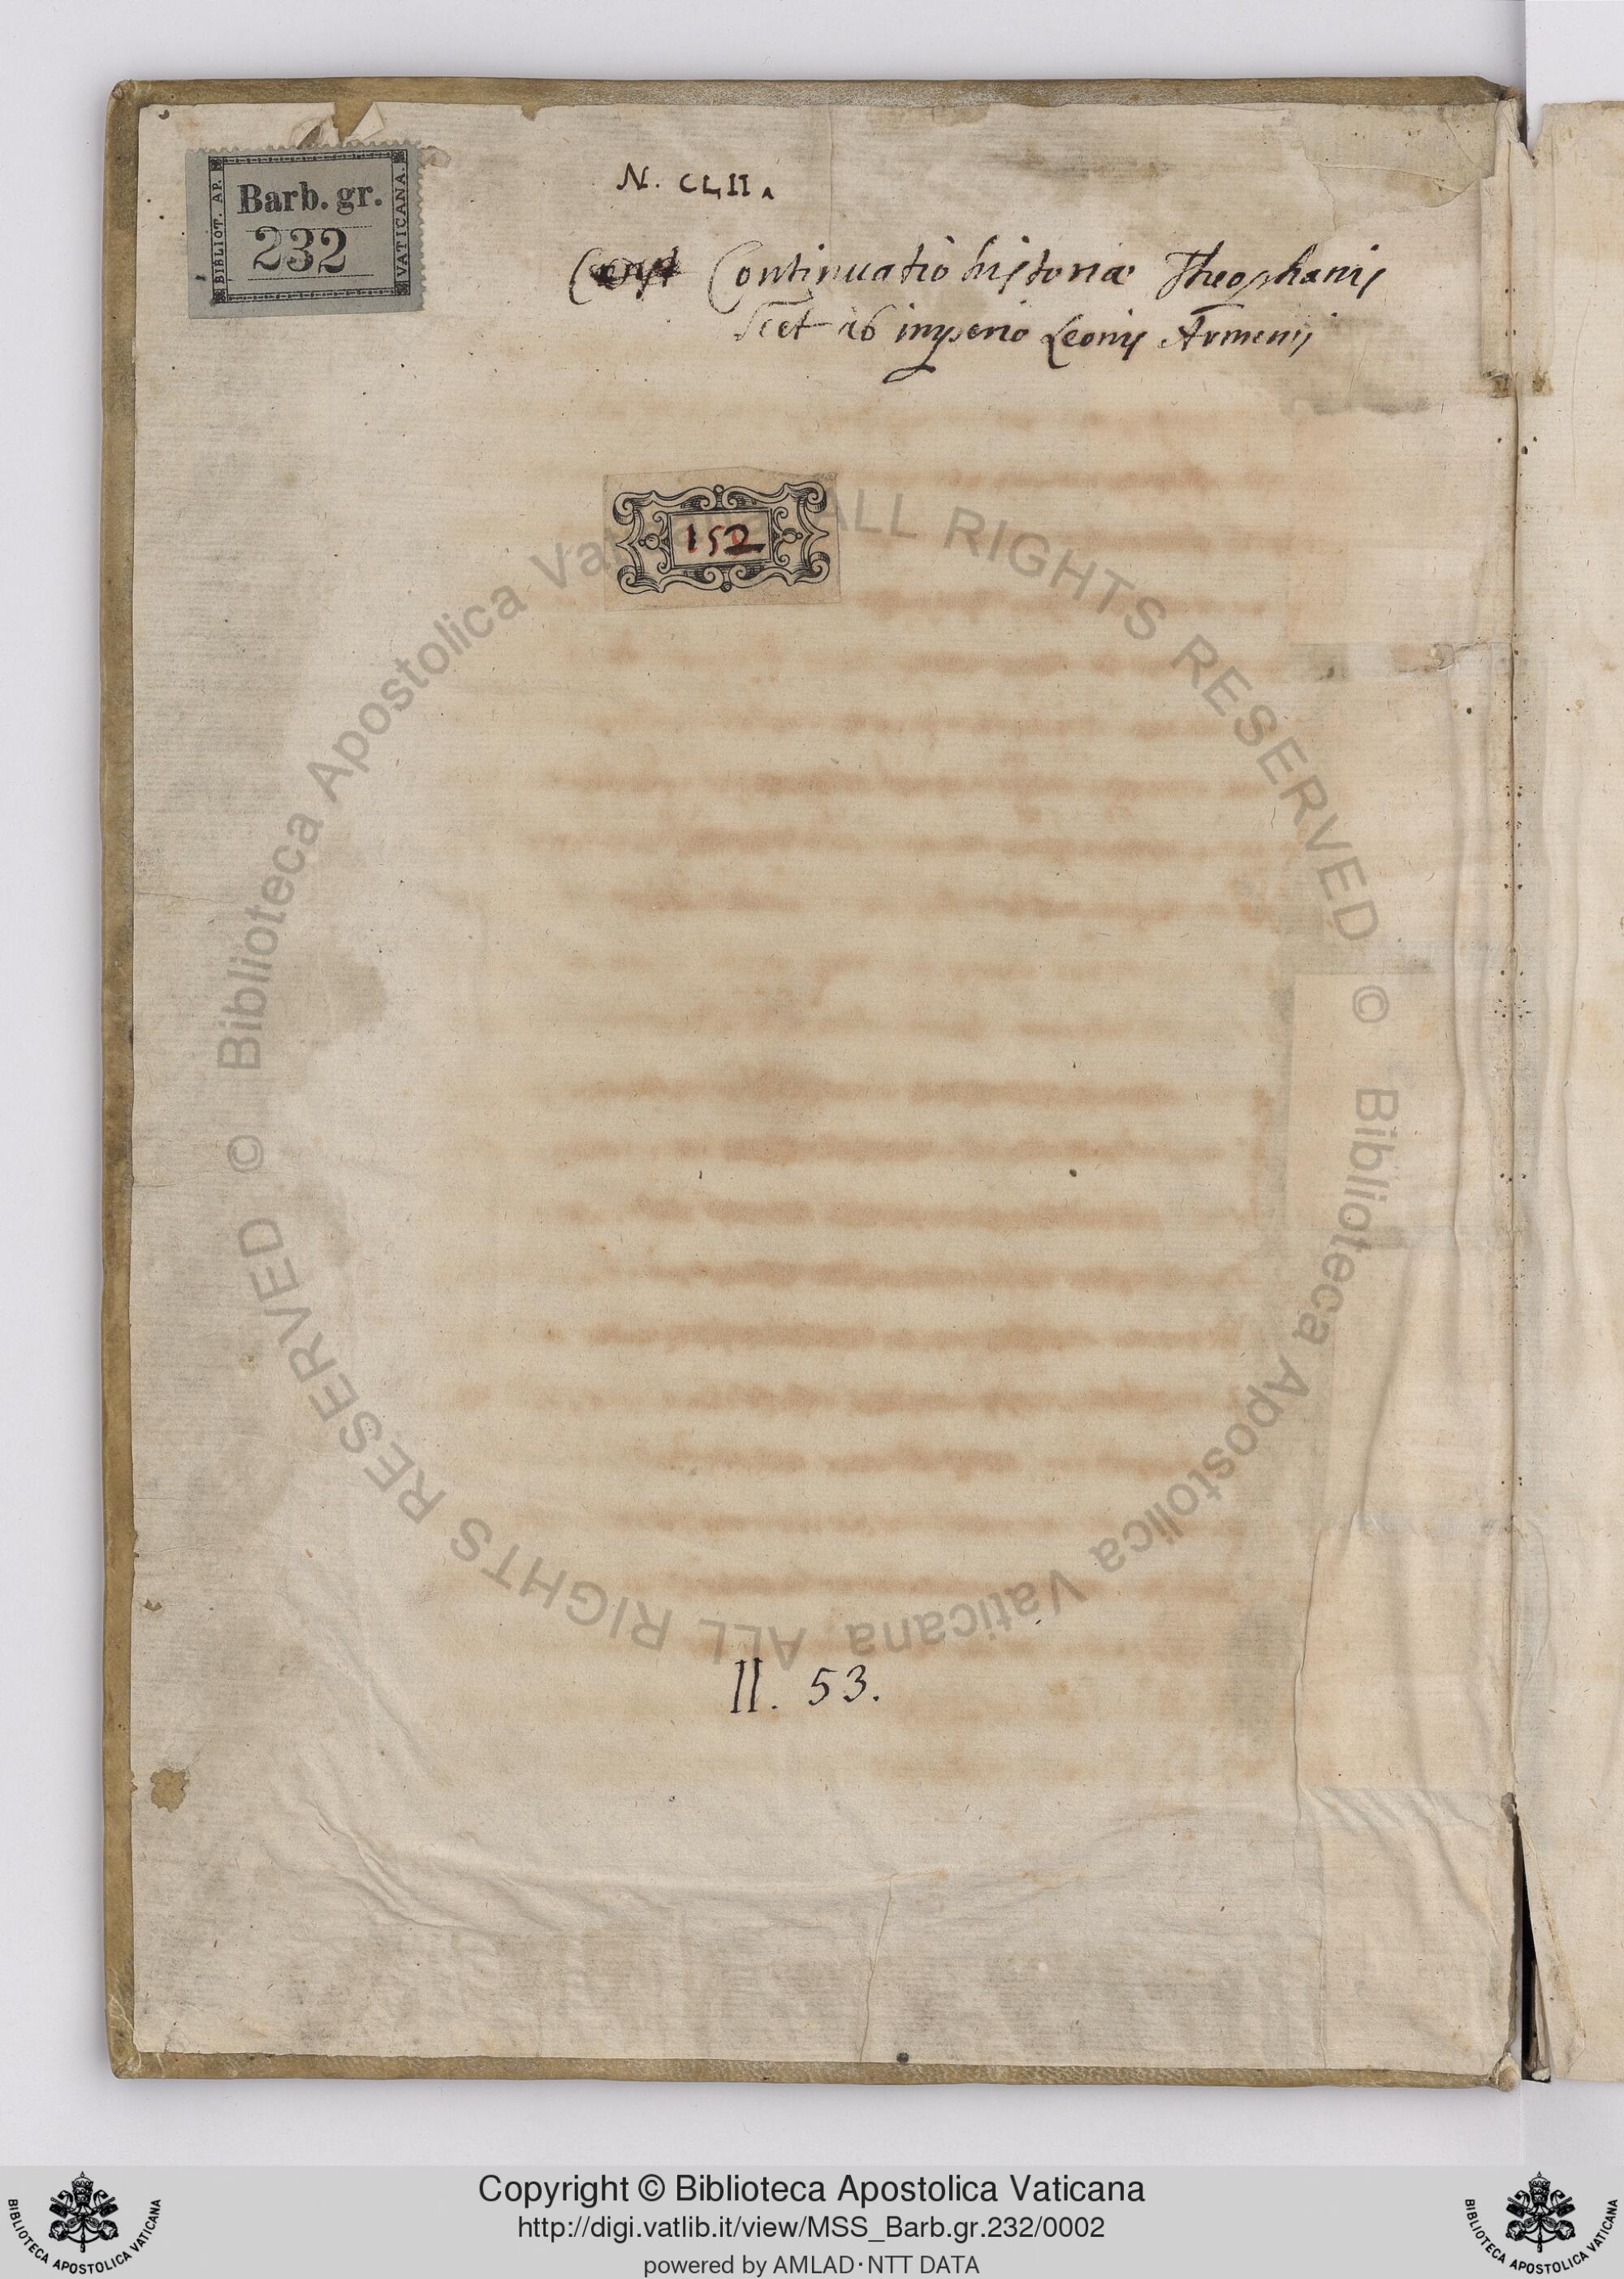 BIBLIOT. AP.
Barb. gr.
232
VATICANA.
N. CLII.
Continuatio historiae Theophanis
scet ab imperio Leonis Armenij
152
II. 53.
© Biblioteca Apostolica Vaticana ALL RIGHTS RESERVED © Biblioteca Apostolica Vaticana ALL RIGHTS RESERVED
Copyright © Biblioteca Apostolica Vaticana
http://digi.vatlib.it/view/MSS_Barb.gr.232/0002
powered by AMLAD·NTT DATA
BIBLIOTECA APOSTOLICA VATICANA
BIBLIOTECA APOSTOLICA VATICANA